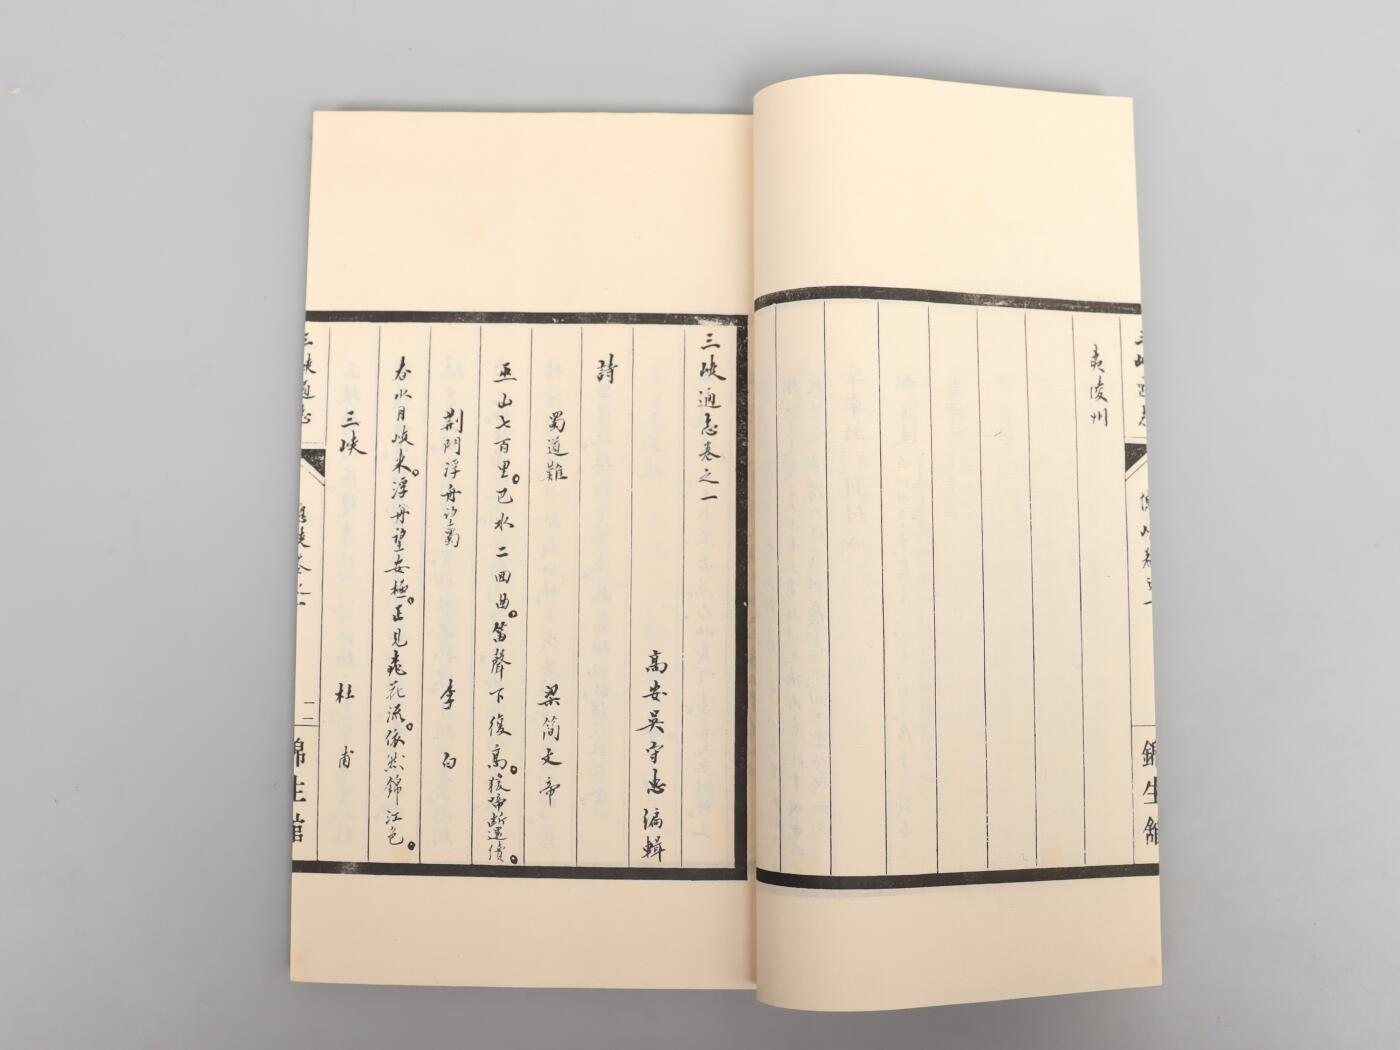 夷陵州
三峽通志卷之一
高安吳守忠編輯
詩
蜀道難 梁简文帝
巫山七百里。巴水二回曲。笛聲下復高。猿啼斷還續。
荆門浮舟望蜀 李白
春水月峽来。浮舟望安極。正見桃花流。依然錦江色。
三峽 杜甫
三峽通志
錦生館
錦生館